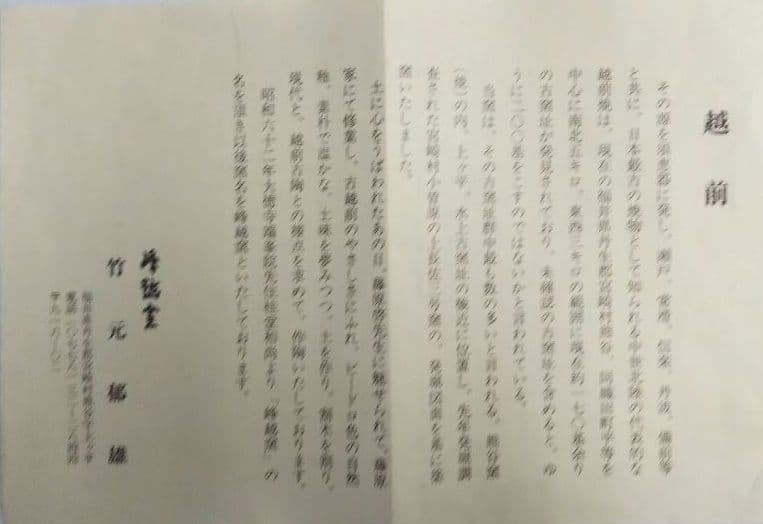 越前
その源を須恵器に発し、瀬戸、常滑、信楽、丹波、備前等
と共に、日本最古の焼物として知られる中世北陸の代表的な
越前焼は、現在の福井県丹生郡宮崎村熊谷、同織田町平等を
中心に南北五キロ、東西三キロの範囲に現在約一七〇基余り
の古窯址が発見されており、未確認の古窯址を含めると、ゆ
うに二〇〇基をこすのではないかと言われている。
当窯は、その古窯址群中最も数の多いと言われる、熊谷窯
の内、上ヶ平、水上古窯址の
査された宮崎村小曽原の上長佐三号窯の、発掘図面を基に築
窯いたしました。
土に心をうばわれたあの日、藤原啓先生に魅せられて、藤原
家にて修業し、古越前のやさしさにふれ、ビードロ色の自然
釉、素朴で温かな、土味を夢みつつ、土を作り、割木を割り、
現代と、越前古陶との接点を求めて、作陶いたしております。
昭和六十二年大徳寺瑞峯院先住桂堂和尚より『峰越窯』の
名を頂き以後窯名を峰越窯といたしております。
峰越窯
竹元郁雄
福井県丹生郡宮崎村熊谷